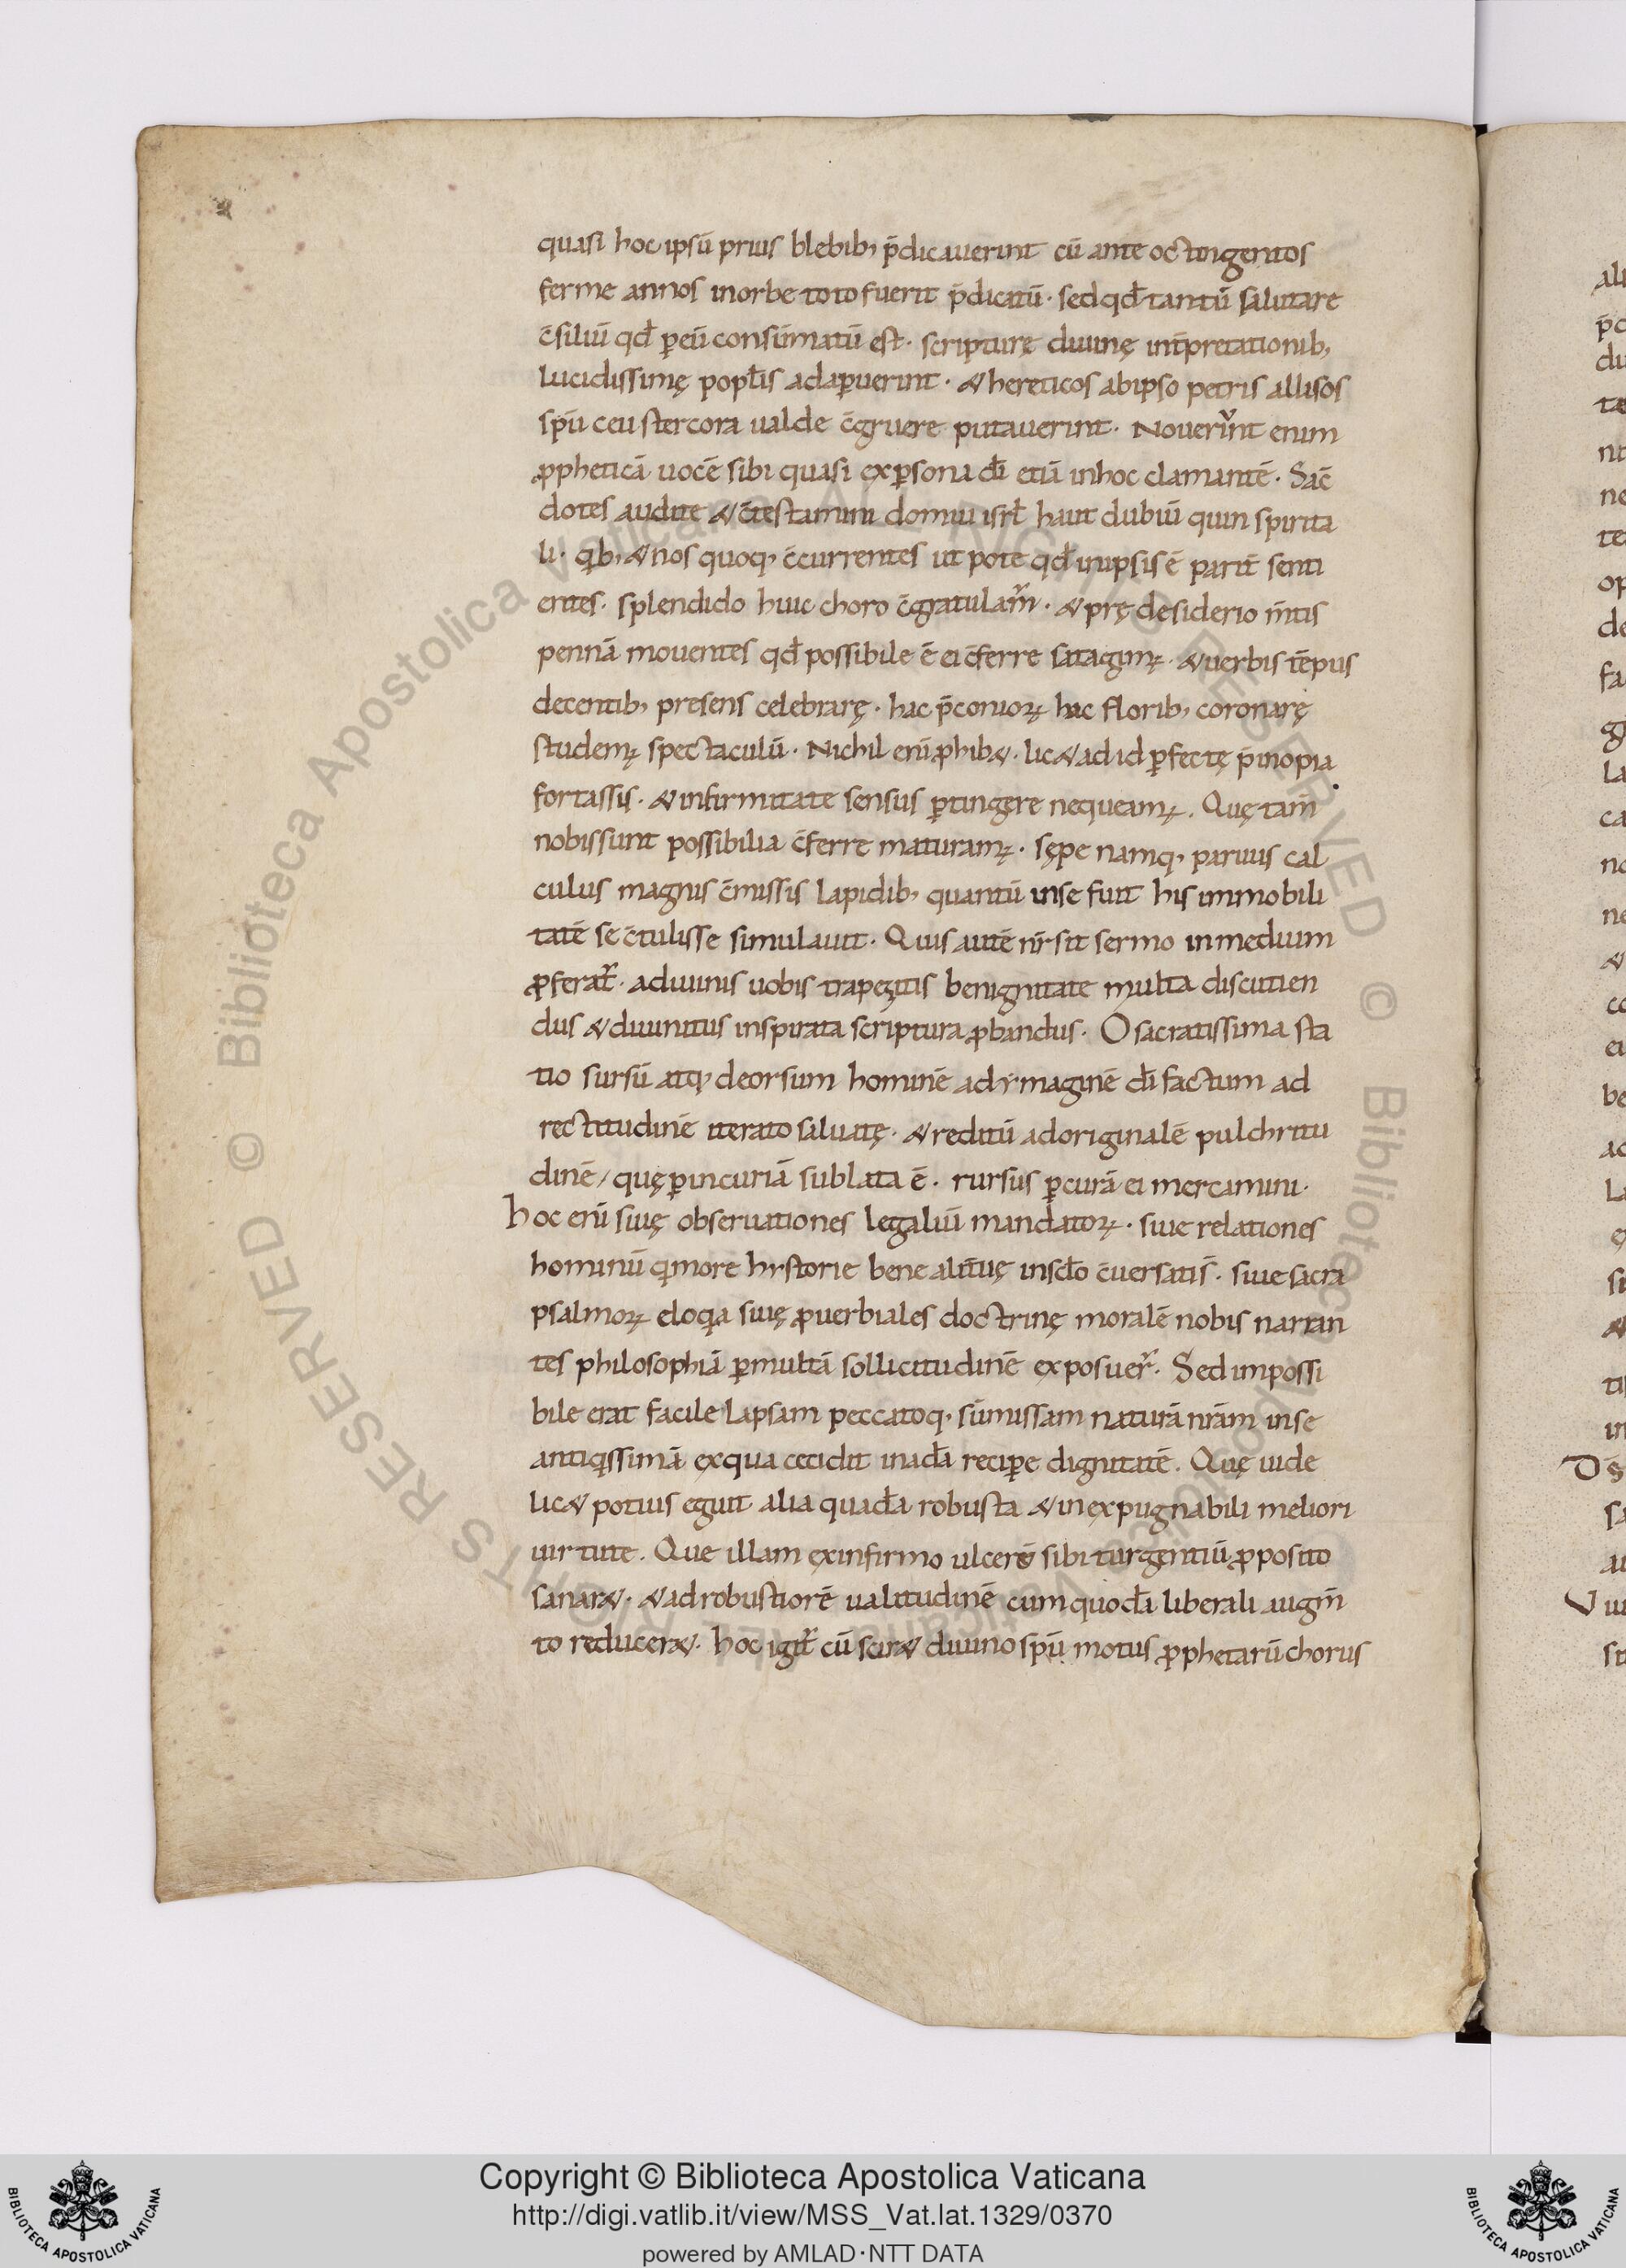 quasi hoc ipsū prius blebib; p̄dicauerint cū ante octingentos
ferme annos inorbe toto fuerit p̄dicatū· sed qđ tantū salutare
c̄siliū qđ ꝑ eū consūmatū est· scripturę diuinę int̄pretationib;
lucidissimę popl̄is adaꝑuerint· & hereticos abipso petris allisos
sp̄u ceu stercora ualde c̄gruere putauerint· Nouerint enim
ꝓpheticā uocē sibi quasi exꝑsona dī etiā inhoc clamantē· Sac̄
dotes audite & c̄testamini domui isrl̄ haut dubiū quin spirita
li· qib; & nos quoq; c̄currentes ut pote qđ inipsis ē parit̄ senti
entes· splendido huic choro c̄gratulam̄· & prę desiderio m̄tis
pennā mouentes qđ possibile ē ei c̄ferre satagimꝰ· & uerbis tēpus
decentib; presens celebrarę· hac p̄conioꝝ hac florib; coronarę
studemꝰ spectaculū· Nichil enī ꝓhib&· lic& ad id ꝑfectę p̄ inopia
fortassis· & infirmitate sensus ꝑtingere nequeamꝰ. Quę tam̄
nobis sunt possibilia c̄ferre maturamꝰ· sępe namq; paruus cal
culus magnis c̄missis lapidib; quantū inse fuit his immobili
tatē se c̄tulisse simulauit· Quis autē nr̄ sit sermo inmedium
ꝓferat̄· adiuinis uobis trapezitis benignitate multa discutien
dus & diuinitus inspirata scriptura ꝓbandus· O sacratissima sta
tio sursū atq; deorsum hominē ad ymaginē dī factum ad
rectitudinē iterato saluatę· & reditū ad originalē pulchritu
dinē / quę ꝑ incuriā sublata ē· rursus ꝑ curā ei mercamini·
hoc enī siuę obseruationes legaliū mandatoꝝ· siue relationes
hominū qi more hystorie bene alit̄uę insc̄lo c̄uersatis· siue sacra
psalmoꝝ eloqia siuę ꝓuerbiales doctrinę moralē nobis narran
tes philosophiā ꝑ multā sollicitudinē exposuer̄· Sed impossi
bile erat facile lapsam peccatoq; sūmissam naturā nr̄am inse
antiqissimā ex qua cecidit inad̄a reciꝑe dignitatē. Quę uide
lic& potius eguit alia quad̄a robusta & inexpugnabili meliori
uirtute. Que illam exinfirmo ulcere sibi turgentiū ꝓposito
sanar&· & ad robustiorē ualitudinē cum quod̄a liberali augm̄
to reducer&· hoc igit̄ cū scir& diuino sp̄u motus ꝓphetarū chorus
Copyright © Biblioteca Apostolica Vaticana
http://digi.vatlib.it/view/MSS_Vat.lat.1329/0370
powered by AMLAD·NTT DATA